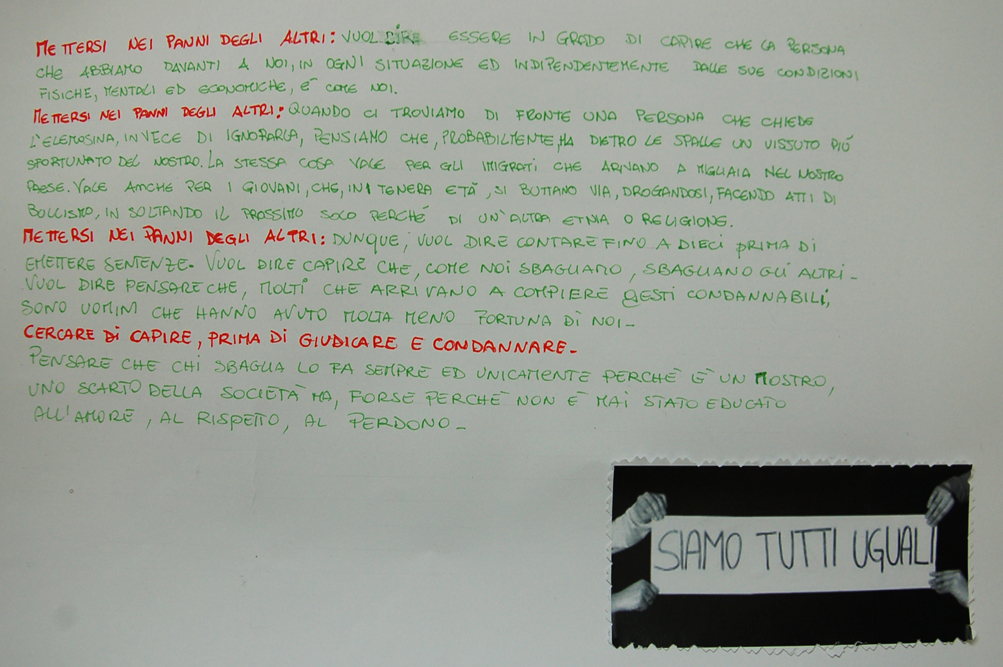 METTERSI NEI PANNI DEGLI ALTRI: VUOL DIRE ESSERE IN GRADO DI CAPIRE CHE LA PERSONA
CHE ABBIAMO DAVANTI A NOI, IN OGNI SITUAZIONE ED INDIPENDENTEMENTE DALLE SUE CONDIZIONI
FISICHE, MENTALI ED ECONOMICHE, E' COME NOI.
METTERSI NEI PANNI DEGLI ALTRI: QUANDO CI TROVIAMO DI FRONTE UNA PERSONA CHE CHIEDE
L'ELEMOSINA, INVECE DI IGNORARLA, PENSIAMO CHE, PROBABILMENTE, HA DIETRO LE SPALLE UN VISSUTO PIÚ
SFORTUNATO DEL NOSTRO. LA STESSA COSA VALE PER GLI IMIGRATI CHE ARIVANO A MIGLIAIA NEL NOSTRO
PAESE. VALE ANCHE PER I GIOVANI, CHE, IN TENERA ETÀ, SI BUTTANO VIA, DROGANDOSI, FACENDO ATTI DI
BULLISMO, IN SOLTANDO IL PROSSIMO SOLO PERCHÉ DI UN'ALTRA ETNIA O RELIGIONE.
METTERSI NEI PANNI DEGLI ALTRI: DUNQUE, VUOL DIRE CONTARE FINO A DIECI PRIMA DI
EMETTERE SENTENZE. VUOL DIRE CAPIRE CHE, COME NOI SBAGLIAMO, SBAGLIANO GLI ALTRI.
VUOL DIRE PENSARE CHE, MOLTI CHE ARRIVANO A COMPIERE GESTI CONDANNABILI,
SONO UOMINI CHE HANNO AVUTO MOLTA MENO FORTUNA DI NOI.
CERCARE DI CAPIRE, PRIMA DI GIUDICARE E CONDANNARE.
PENSARE CHE CHI SBAGLIA LO FA SEMPRE ED UNICAMENTE PERCHÉ È UN MOSTRO,
UNO SCARTO DELLA SOCIETÀ MA, FORSE PERCHÉ NON È MAI STATO EDUCATO
ALL'AMORE, AL RISPETTO, AL PERDONO.
SIAMO TUTTI UGUALI